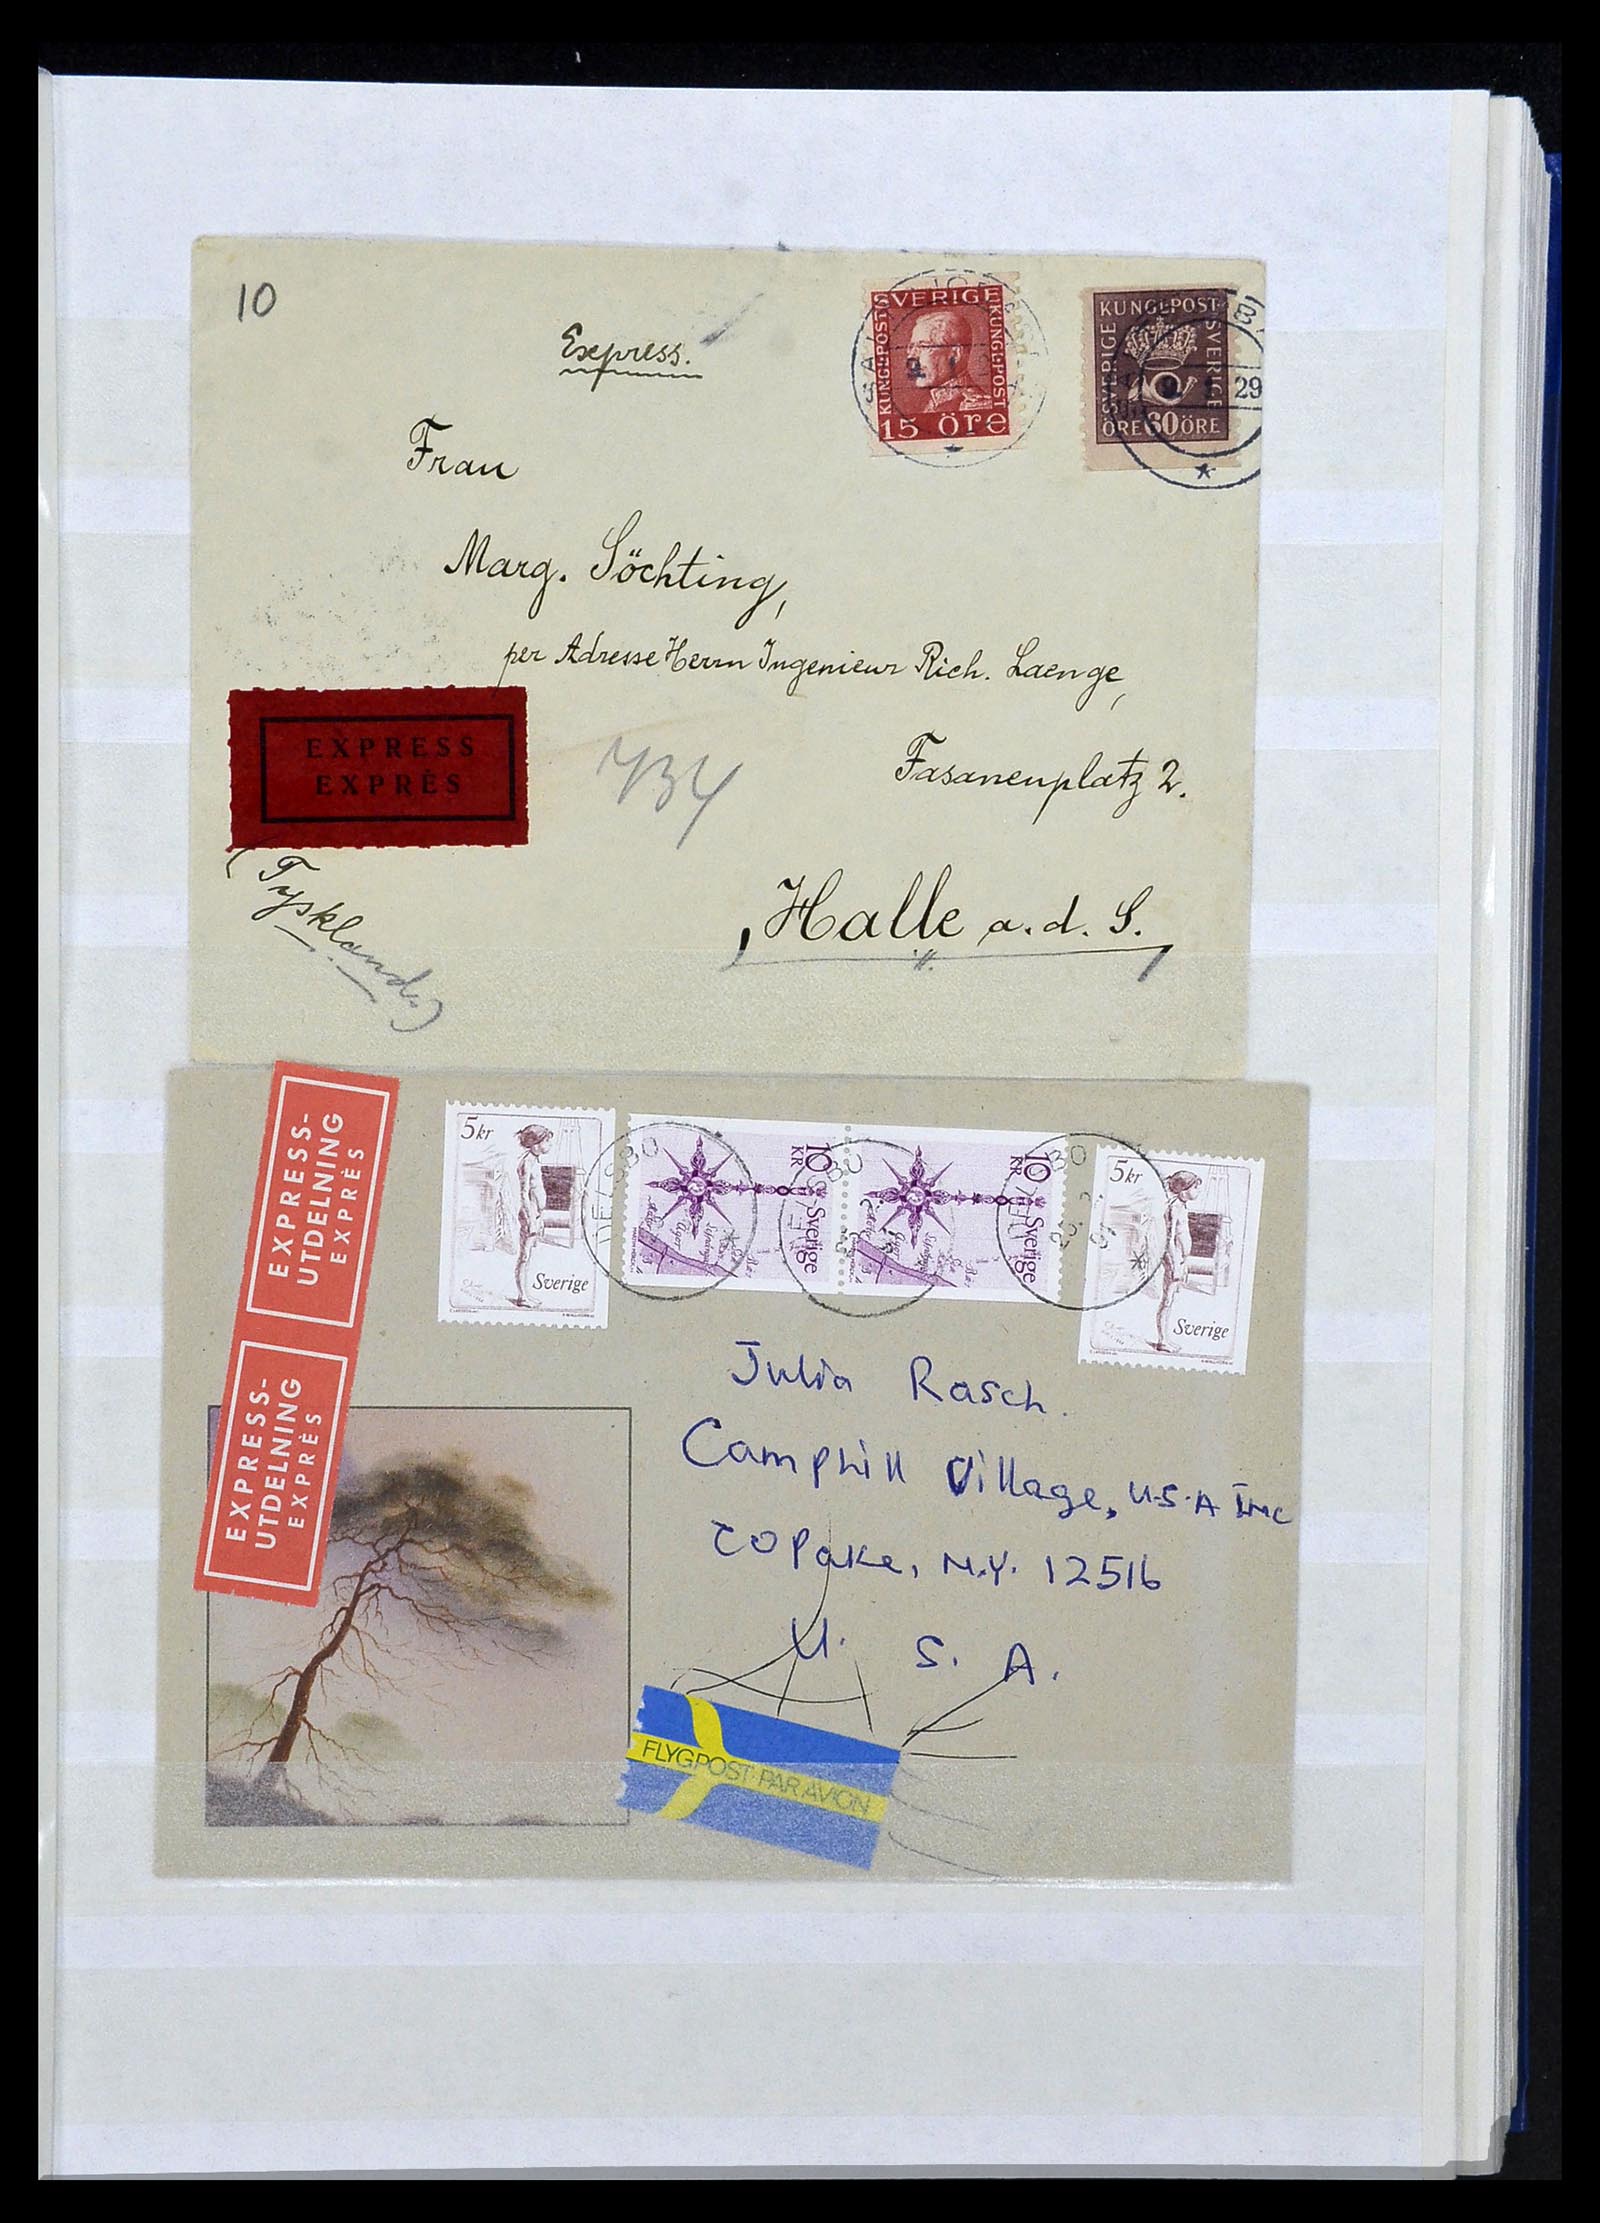 10
Express.
SVERIGE
KUNGL·POST
KUNGL·POST
15 öre
KUNGL·POST
SVERIGE
SVERIGE
ÖRE 60 ÖRE
29
Frau
Marg. Söchting,
per Adresse Herrn Ingenieur Rich. Laenge,
Fasanenplatz 2.
Halle a. d. S.
EXPRESS
EXPRÈS
734
(Tyskland.)
EXPRESS-
UTDELNING
EXPRÈS
EXPRESS-
UTDELNING
EXPRÈS
5 kr
Sverige
DELSBO
10 KR
Sverige
10 KR
Sverige
5 kr
Sverige
Julia Rasch.
Camphill Village, U.S.A Inc
Copake, N.Y. 12516
U. S. A.
FLYGPOST·PAR AVION